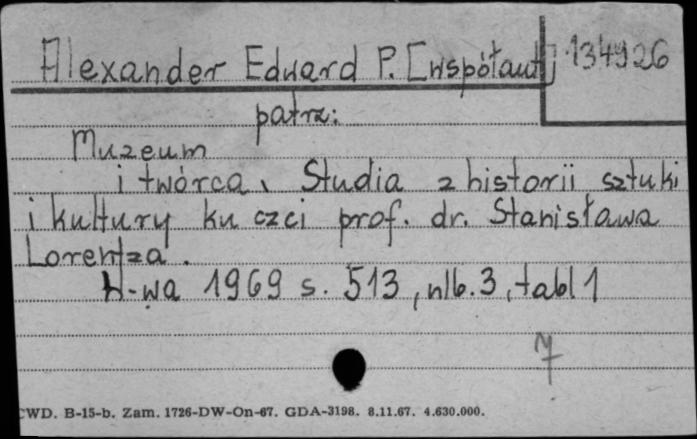 Alexander Edward P. [współaut] 134926
patrz:
Muzeum
i twórca. Studia z historii sztuki
i kultury ku czci prof. dr. Stanisława
Lorentza.
W-wa 1969 s. 513, nlb. 3, tabl 1
7
CWD. B-15-b. Zam. 1726-DW-On-67. GDA-3198. 8.11.67. 4.630.000.